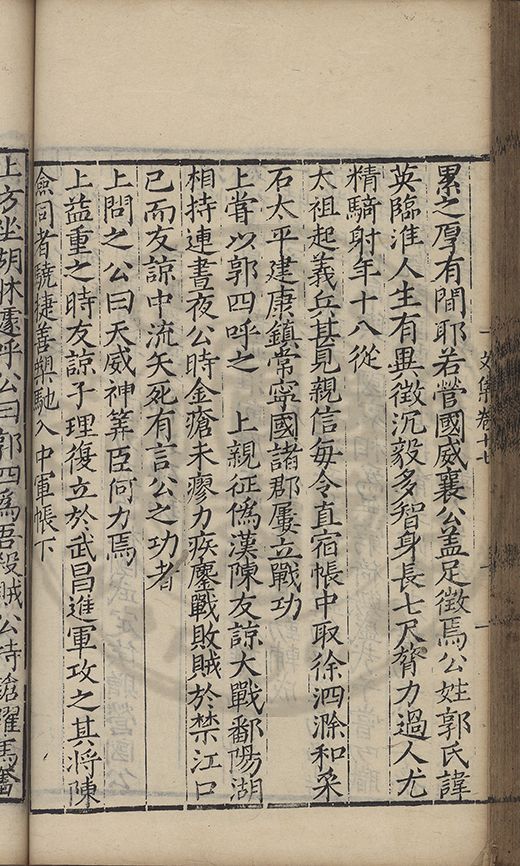 文集卷十七
累之厚有間耶若營國威襄公蓋足徵焉公姓郭氏諱
英臨淮人生有異徵沉毅多智身長七尺膂力過人尤
精騎射年十八從
太祖起義兵甚見親信每令直宿帳中取徐泗滁和采
石太平建康鎮常寧國諸郡屢立戰功
上嘗以郭四呼之　上親征偽漢陳友諒大戰鄱陽湖
相持連晝夜公時金瘡未瘳力疾鏖戰敗賊於禁江口
已而友諒中流矢死有言公之功者
上問之公曰天威神筭臣何力焉
上益重之時友諒子理復立於武昌進軍攻之其將陳
僉同者驍捷善槊馳入中軍帳下
上方坐胡床遽呼公曰郭四為吾殺賊公持鎗躍馬奮